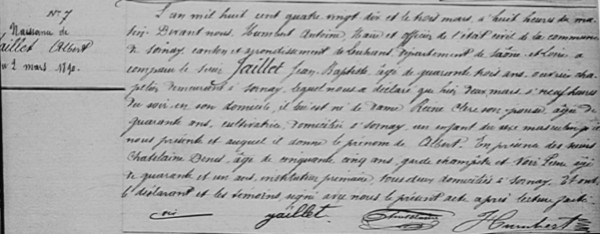 N° 7
Naissance de
Jaillet Albert
2 mars 1890.
L'an mil huit cent quatre vingt dix et le trois mars, à huit heures du ma-
tin. Devant nous Humbert Antoine, Maire et officier de l'état civil de la commune
de Sornay, canton et arrondissement de Louhans, département de Saône et Loire a
comparu le sieur Jaillet Jean-Baptiste, âgé de quarante trois ans,
demeurant à Sornay, lequel nous a déclaré que hier deux mars, à neuf heures
du soir en son domicile, il lui est né de dame Reine Clerc son épouse, âgée de
quarante ans, cultivatrice, domiciliée à Sornay, un enfant du sexe masculin qu'il
nous présente et auquel il donne le prénom de Albert. En présence des sieurs
Chatelaine Denis, âgé de cinquante cinq ans, garde champêtre et âgé
de quarante et un ans, instituteur primaire, tous deux domiciliés à Sornay. Et ont
le déclarant et les témoins, signé avec nous le présent acte après lecture faite.
Jaillet. Humbert